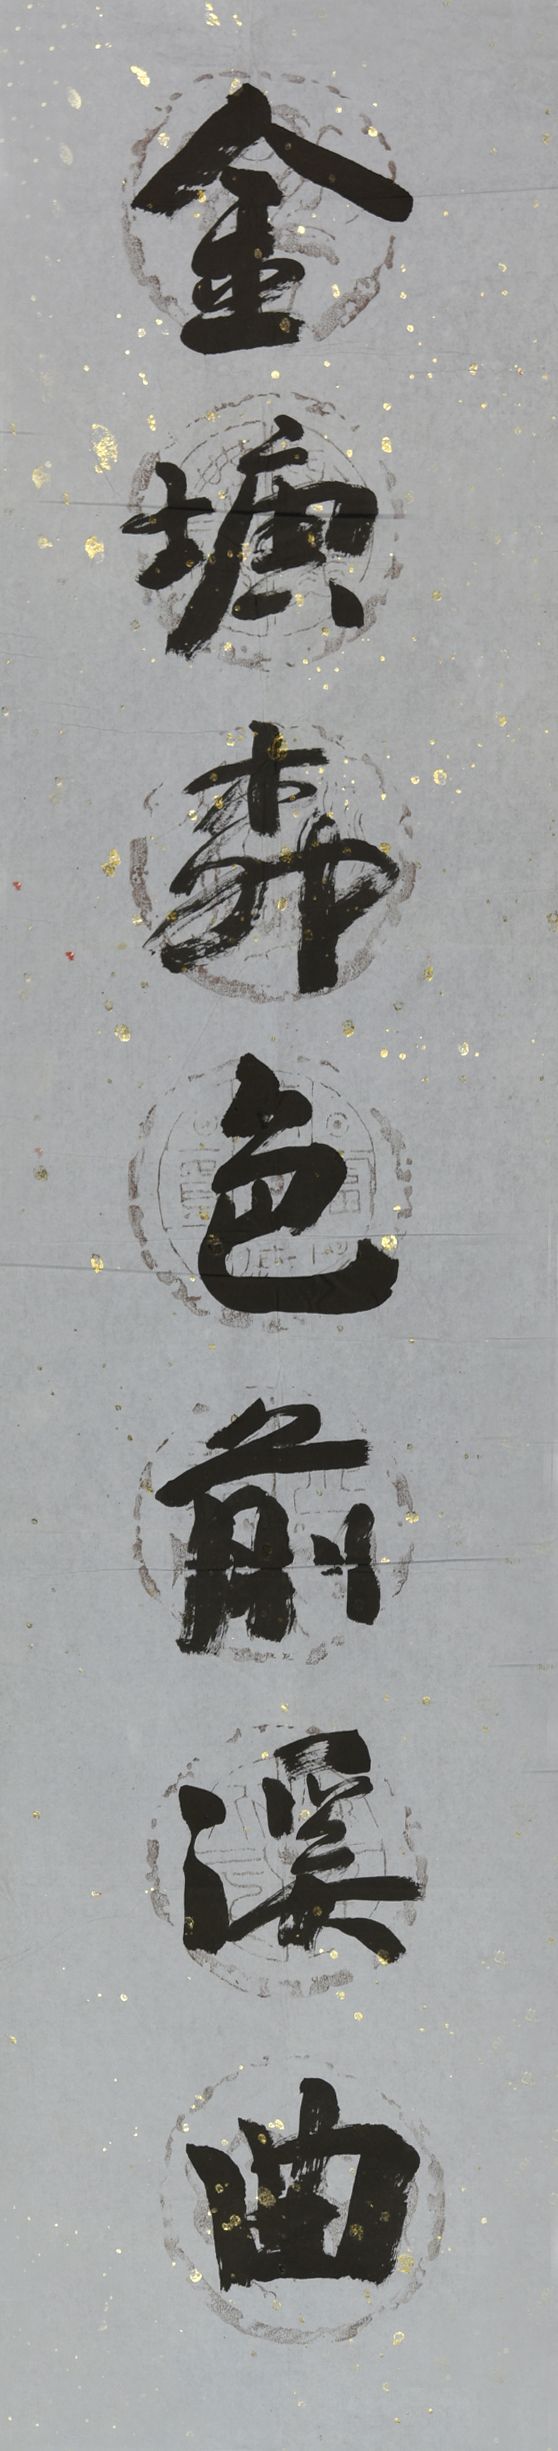 金塘柳色前溪曲